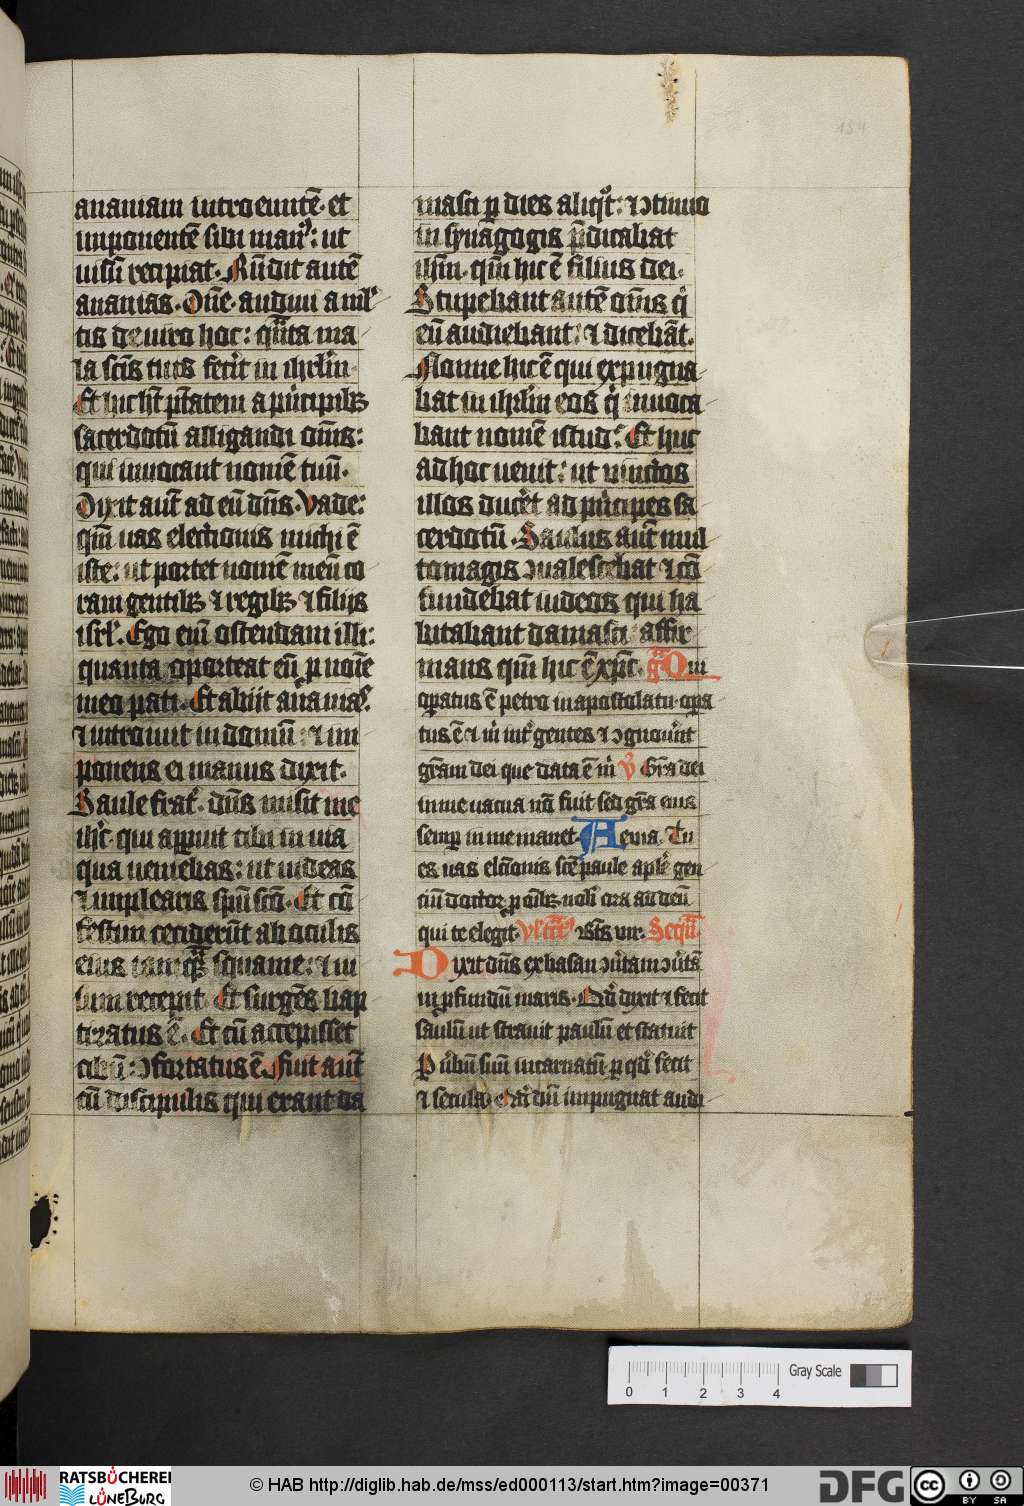 ananiam introeuntē. et
imponentē sibi manꝰ: ut
uisū recipiat. Rn̄dit autē
ananias. Dn̄e. audiui a ml̕
tis de uiro hoc: qn̄ta ma
la scīs tuis fecit in ihrl̄m.
Et hic ht̄ ptātem a p̕ncipibꝫ
sacerdotū alligandi om̄s:
qui inuocant nomē tuū.
Dixit aut̄ ad eū dn̄s. Vade:
qm̄ uas electionis michi ē
iste: ut portet nomē meū co
ram gentibꝫ ⁊ regibꝫ ⁊ filijs
isrl̕. Ego eni̅ ostendam illi:
quanta oporteat eū ꝓ noīe
meo pati. Et abijt ananias.
⁊ introiuit in domū: ⁊ im
ponens ei manus dixit.
Saule frat̕. dn̄s misit me
ihc̄. qui apparuit tibi in uia
qua ueniebas: ut uideas
⁊ implearis spū scō. Et cū
festim ceciderūt ab oculis
eius tamqꝫ squame: ⁊ ui
sum recepit. Et surgēs bap
tizatus ē. Et cū accepisset
cibū: ɔfortatus ē. Fuit aut̄
cū discipulis qui erant da
masci ꝑ dies aliqͦt: ⁊ ɔtinuo
in synagogis p̄dicabat
ihm̄. qm̄ hic ē filius dei.
Stupebant autē om̄s q̕
eū audiebant: ⁊ dicebāt.
Nonne hic ē qui expugna
bat in ihrl̄m eos q̕ inuoca
bant nomē istud: Et huc
ad hoc uenit: ut uinctos
illos ducēt ad p̕ncipes sa
cerdotū. Saulus aut̄ mul
tomagis ɔualescebat ⁊ cō
fundebat iudeos qui ha
bitabant damasci affir
mans qm̄ hic ē xp̄c. gͣ Qui
oꝑatus ē petro in apostolatu. oꝑa
tus ē ⁊ m̕ int̕ gentes ⁊ ɔgnouūnt
grām dei que data ē m̕ V̕ Grā dei
in me uacua nō fuit sed grā eius
semꝑ in me manet. Aeuia. Tu
es uas elc̄tionis scē paule aplē̄ gen
ciū doctor ꝓ om̄ibꝫ nobis ora ad deū
qui te elegit. Bt̄s uir. Sequā.
Dixit dn̄s ex basan ɔu̕tam ɔu̕tā
in ꝓfundum maris. Qd̕ dixit ⁊ fecit
saulū ut strauit paulū et statuit
P u̕bum suū incarnatū ꝑ qd̕ fecit
⁊ secula Qd̕ dū impugnat audi
0 1 2 3 4 Gray Scale
RATSBÜCHEREI
LÜNEBURG
© HAB http://diglib.hab.de/mss/ed000113/start.htm?image=00371
DFG
cc BY SA